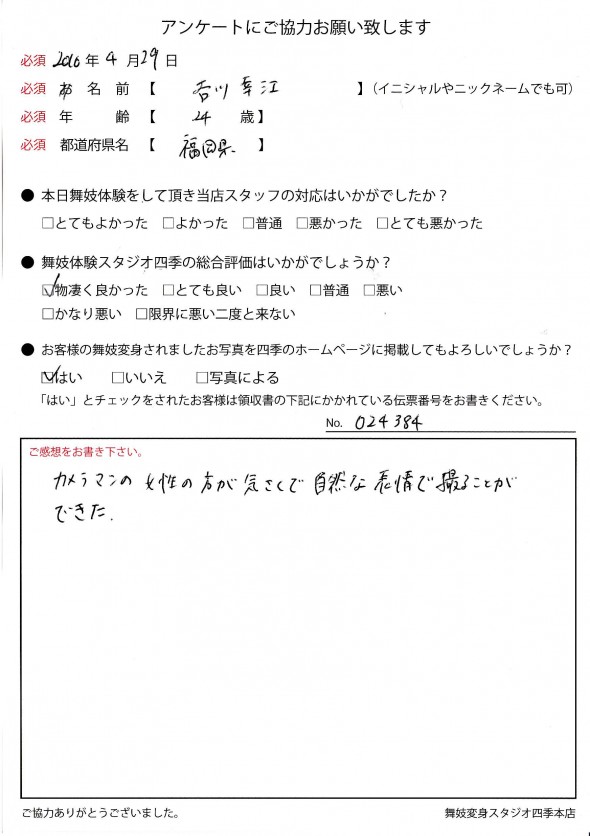 アンケートにご協力お願い致します
必須 2016年4月29日
必須 お名前【 香川 幸江 】(イニシャルやニックネームでも可)
必須 年齢【 24 歳】
必須 都道府県名【 福岡県 】
● 本日舞妓体験をして頂き当店スタッフの対応はいかがでしたか?
□とてもよかった □よかった □普通 □悪かった □とても悪かった
● 舞妓体験スタジオ四季の総合評価はいかがでしょうか?
☑物凄く良かった □とても良い □良い □普通 □悪い
□かなり悪い □限界に悪い二度と来ない
● お客様の舞妓変身されましたお写真を四季のホームページに掲載してもよろしいでしょうか?
☑はい □いいえ □写真による
「はい」とチェックをされたお客様は領収書の下記にかかれている伝票番号をお書きください。
No. 024384
ご感想をお書き下さい。
カメラマンの女性の方が気さくで自然な表情で撮ることが
できた.
ご協力ありがとうございました。 舞妓変身スタジオ四季本店